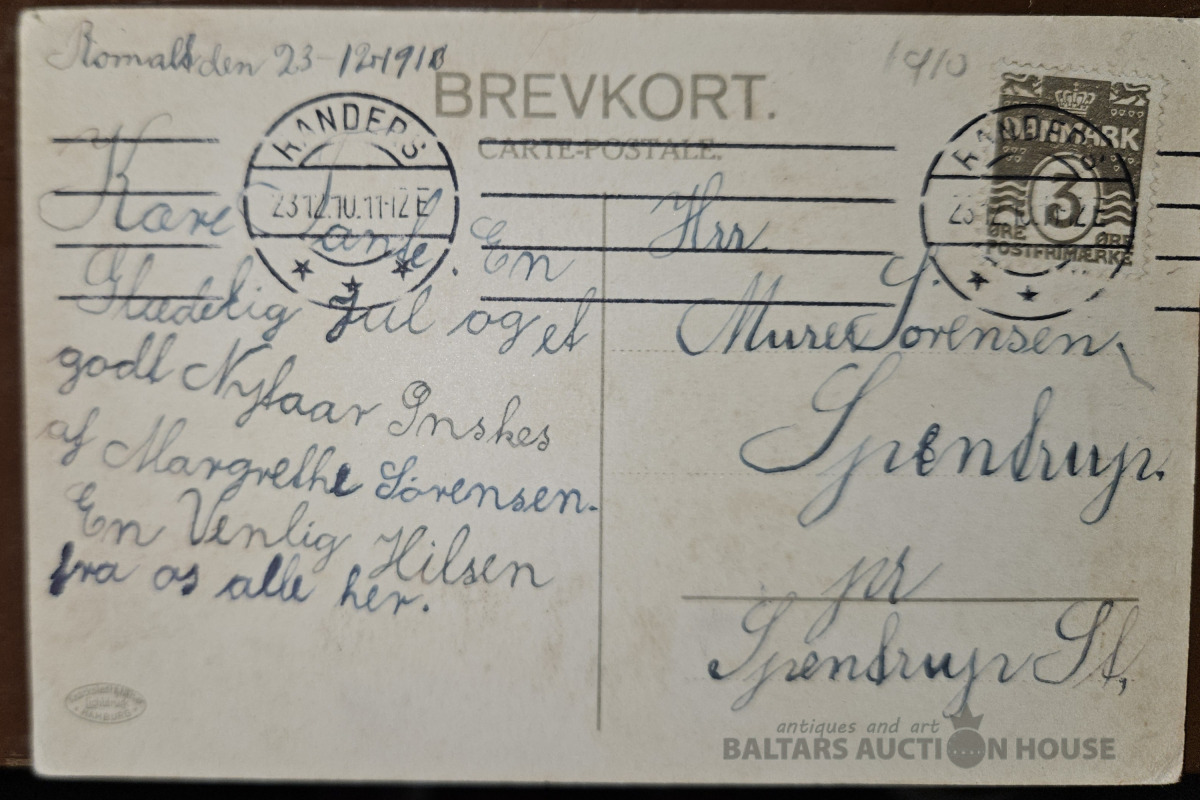 Romalt den 23-12-1910
1910
BREVKORT.
CARTE-POSTALE.
RANDERS
23.12.10.11-12E
RANDERS
23.12.10.11-12E
DANMARK
3
ØRE ØRE
POSTFRIMÆRKE
Kære Tante. En
Glædelig Jul og et
godt Nytaar Ønskes
af Margrethe Sørensen.
En Venlig Hilsen
fra os alle her.
Hrr
S.
Murer Sørensen,
Spentrup.
pr
Spentrup St,
HAMBURG
antiques and art
BALTARS AUCTION HOUSE